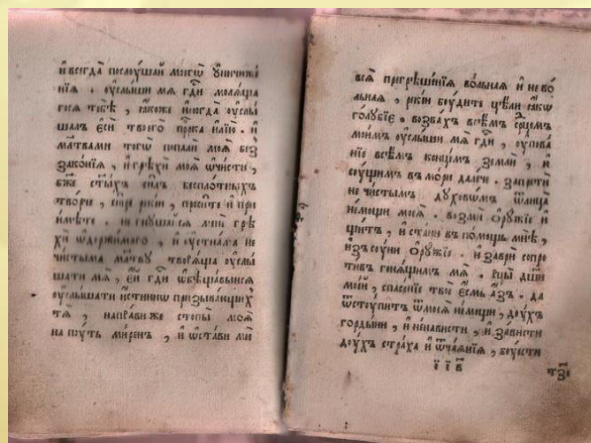 и҆ всегда̀ послꙋ́шай моегѡ̀ ᲂу҆ничиже
нїѧ . ᲂу҆слы́ши мѧ̀ гдⷭ҇и молѧ́ща
госѧ тебѣ̀ , ꙗ҆́коже и҆ногда̀ ᲂу҆слы́
шалъ є҆сѝ твоего̀ прⷪ҇ро́ка и҆лїю̀ . и҆
мл҃твами тогѡ̀ попалѝ моѧ̑ без
зако́нїѧ , и҆ грѣхѝ моѧ̑ ѡ҆чи́сти ,
бж҃е ст҃ы́хъ си́лъ безпло́тныхъ
тво́рче , сы́й ркі́й , проси́те и҆ прїи
и́мете . не гнꙋша́йсѧ менѐ грѣ
хѝ ѡ҆держи́маго , и҆ ᲂу҆стна́ма не
чи́стыма мл҃твꙋ творѧ́ща ᲂу҆слы
шати мѧ̀ , є҆́й гдⷭ҇и ѡ҆бѣща́выйсѧ
ᲂу҆слы́шати и҆́стинною призыва́ющихъ
тѧ̀ , напра́ви же стопы̀ моѧ̑
на пꙋ́ть ми́ренъ , и҆ ѡ҆ста́ви мѝ
всѧ̑ прегрѣше́нїѧ вѡ́льнаѧ и҆ нево́
льнаѧ , ркі́й бꙋ́дите цѣ́ли ꙗ҆́кѡ
го́лꙋбїе . воззва́хъ всѣ́мъ се́рдцемъ
мои́мъ ᲂу҆слы́ши мѧ̀ гдⷭ҇и , ᲂу҆пова́
нїе всѣ́мъ конце́мъ землѝ , и҆
сꙋ́щимъ въ мо́ри дале́че . запретѝ
нечи́стымъ дꙋховѡ́мъ ѿ лица̀
не́мощи моеѧ̀ . возмѝ ѻ҆рꙋ́жїе и҆
щи́тъ , и҆ ста́ни въ по́мощь мнѣ̀ ,
и҆зсꙋ́ни ѻ҆рꙋ́жїе . и҆ заврѝ сопро
ти́въ гонѧ́щимъ мѧ̀ . рцы̀ дш҃ѝ
мое́й , спасе́нїе твоѐ є҆́смь а҆́зъ . да
ѿстꙋ́питъ ѿ моеѧ̀ не́мощи , дꙋ́хъ
горды́ни , и҆ не́нависти , и҆ за́висти
дꙋ́хъ стра́ха и҆ ѿча́ѧнїѧ , бꙋ́ести